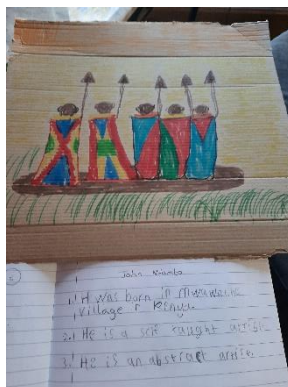 John Ndambo
1. H was born in
village r Kenya
2. He is a self taught artist
3. He is an abstract artist